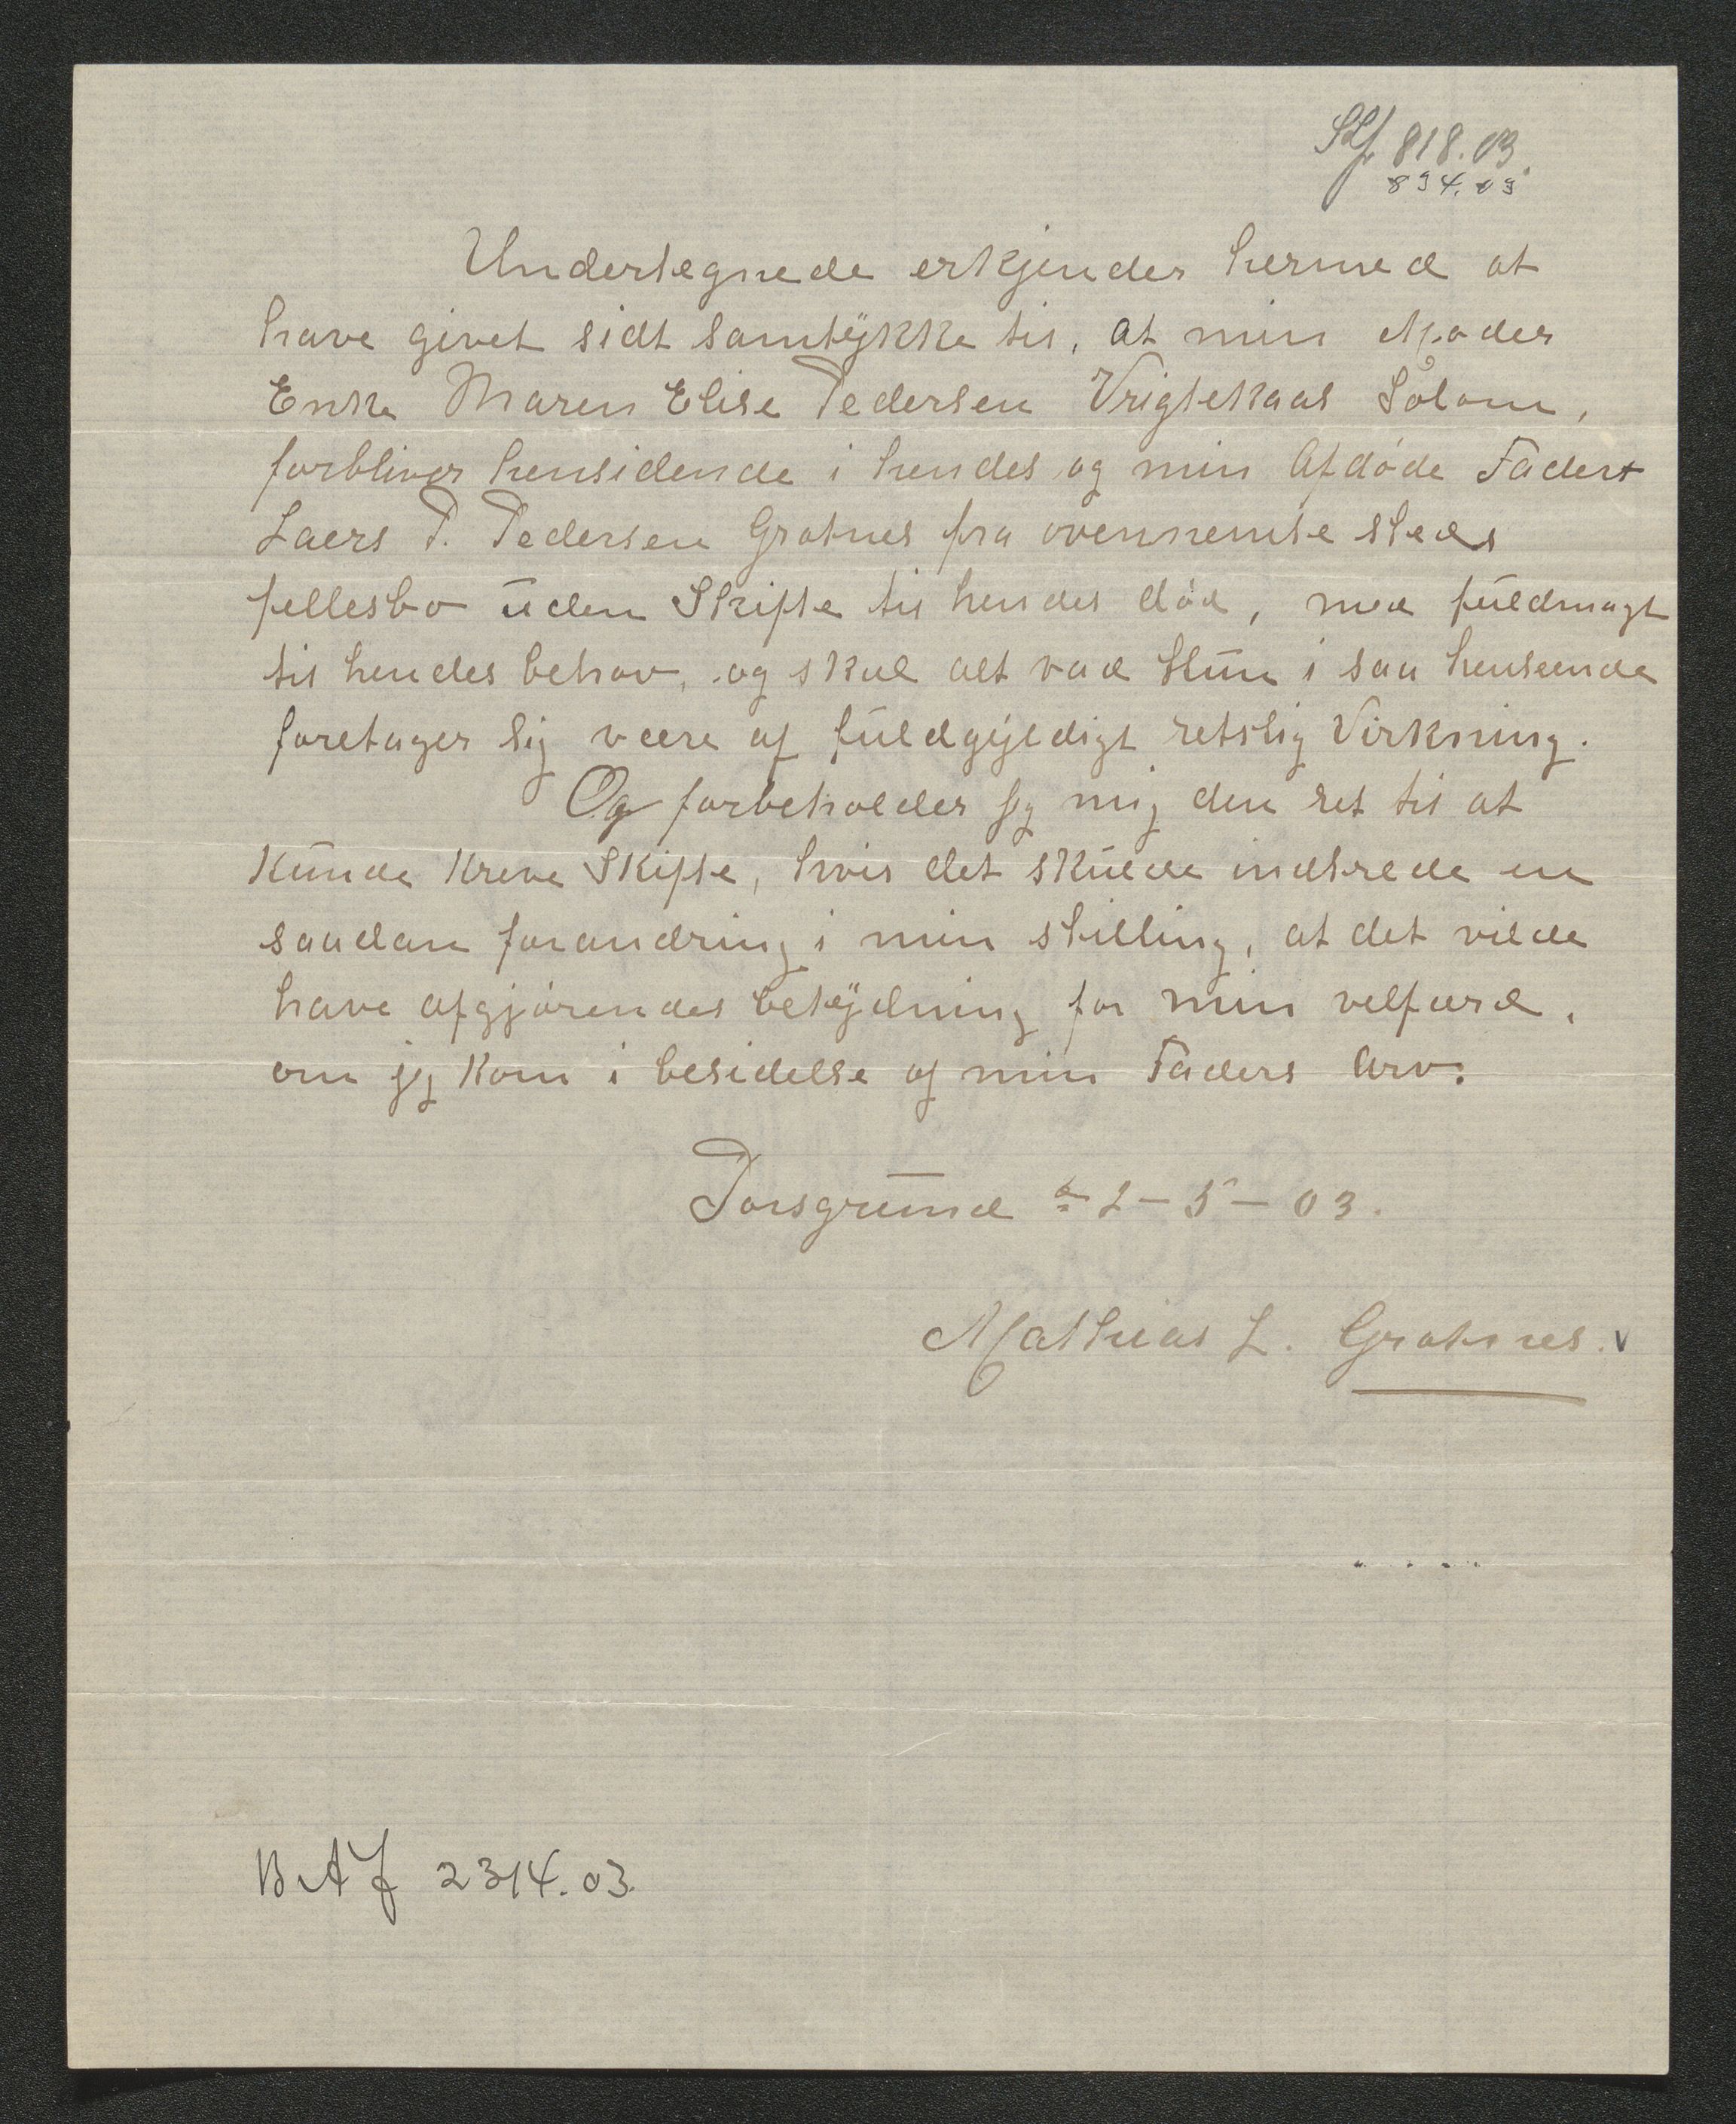 818.03.
894.03
Undertegnede erkjender hermed at
have givet sidt samtykke til, at min Moder
Enke Maren Elise Pedersen Vrigtekaas Solom,
forbliver hensidende i hendes og min Afdøde Faders
Laers P. Pedersen Grotnes fra ovennemte steds
fellesbo uden Skifte til hendes død, med fuldmagt
til hendes behov, og skal alt vad Hun i saa henseende
foretager sig være af fuldgyldigt retslig Virkning.
Og forbeholder jeg mig den ret til at
kunde kreve Skifte, hvis det skulde indtrede en
saadan forandring i min stilling, at det vilde
have afgjørendes betydning for min velfærd,
om jeg kom i besidelse af min Faders Arv.
Porsgrund 2-5-03.
Mathias L. Grotnes.
BAJ 2314.03.